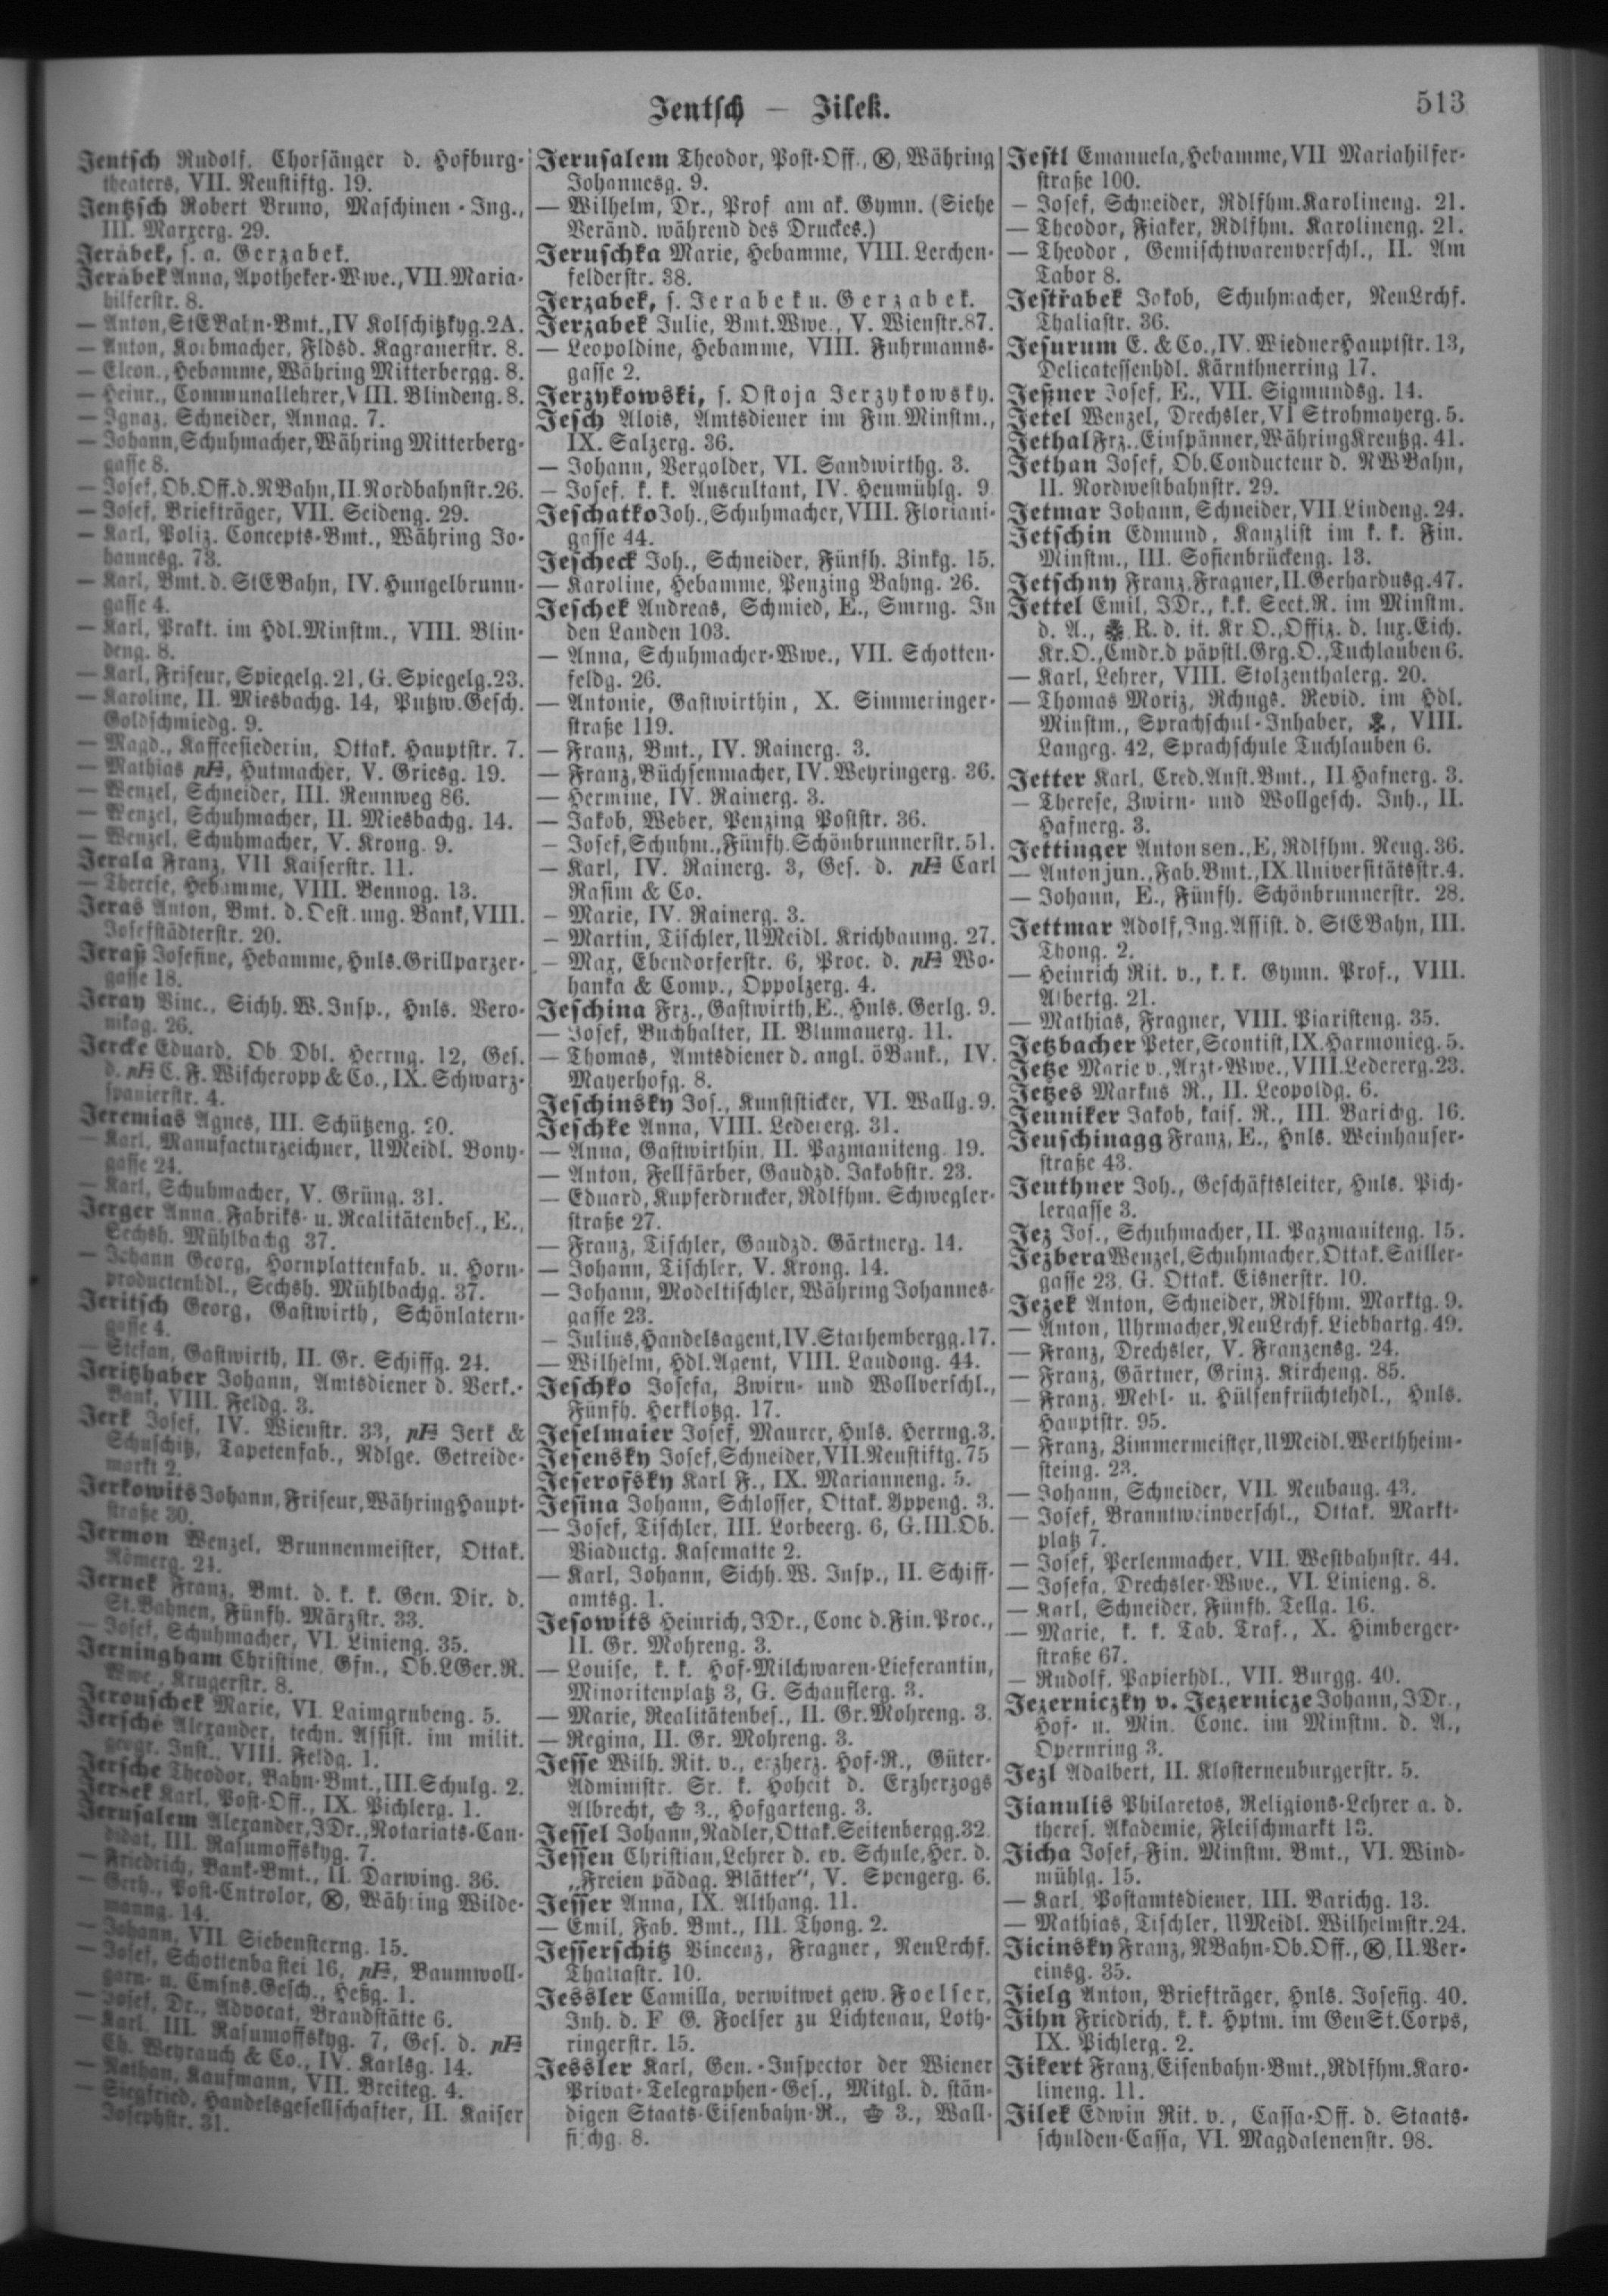 Jentsch — Jilek.
513
Jentsch Rudolf, Chorsänger d. Hofburg-
theaters, VII. Neustiftg. 19.
Jentzsch Robert Bruno, Maschinen-Ing.,
III. Marxerg. 29.
Jeřábek, s. a. Gerzabek.
Jeřábek Anna, Apotheker-Wwe., VII. Maria-
hilferstr. 8.
— Anton, StEBahn-Bmt., IV Kolschitzkyg. 2A.
— Anton, Korbmacher, Fldsd. Kagranerstr. 8.
— Eleon., Hebamme, Währing Mitterbergg. 8.
— Heinr., Communallehrer, VIII. Blindeng. 8.
— Ignaz, Schneider, Annag. 7.
— Johann, Schuhmacher, Währing Mitterberg-
gasse 8.
— Josef, Ob.Off. d. NBahn, II. Nordbahnstr. 26.
— Josef, Briefträger, VII. Seideng. 29.
— Karl, Poliz. Concepts-Bmt., Währing Jo-
hannesg. 73.
— Karl, Bmt. d. StEBahn, IV. Hungelbrunn-
gasse 4.
— Karl, Prakt. im Hdl.Minstm., VIII. Blin-
deng. 8.
— Karl, Friseur, Spiegelg. 21, G. Spiegelg. 23.
— Karoline, II. Miesbachg. 14, Putzw.Gesch.
Goldschmiedg. 9.
— Magd., Kaffeesiederin, Ottak. Hauptstr. 7.
— Mathias pF, Hutmacher, V. Griesg. 19.
— Wenzel, Schneider, III. Rennweg 86.
— Wenzel, Schuhmacher, II. Miesbachg. 14.
— Wenzel, Schuhmacher, V. Krong. 9.
Jerala Franz, VII Kaiserstr. 11.
— Therese, Hebamme, VIII. Bennog. 13.
Jeras Anton, Bmt. d. Oest. ung. Bank, VIII.
Josefstädterstr. 20.
Jeraß Josefine, Hebamme, Hnls. Grillparzer-
gasse 18.
Jeray Vinc., Sichh. W. Insp., Hnls. Vero-
nikag. 26.
Jercke Eduard, Ob. Dbl. Herrng. 12, Ges.
d. pF C. F. Wischeropp & Co., IX. Schwarz-
spanierstr. 4.
Jeremias Agnes, III. Schützeng. 20.
— Karl, Manufacturzeichner, UMeidl. Bony-
gasse 24.
— Karl, Schuhmacher, V. Grüng. 31.
Jerger Anna, Fabriks- u. Realitätenbes., E.,
Sechsh. Mühlbachg 37.
— Johann Georg, Hornplattenfab. u. Horn-
productenhdl., Sechsh. Mühlbachg. 37.
Jeritsch Georg, Gastwirth, Schönlatern-
gasse 4.
— Stefan, Gastwirth, II. Gr. Schiffg. 24.
Jeritzhaber Johann, Amtsdiener d. Verk.-
Bank, VIII. Feldg. 3.
Jerk Josef, IV. Wienstr. 33, pF Jerk &
Schuschitz, Tapetenfab., Rdlge. Getreide-
markt 2.
Jerkowits Johann, Friseur, Währing Haupt-
straße 30.
Jermon Wenzel, Brunnenmeister, Ottak.
Römerg. 24.
Jernek Franz, Bmt. d. k. k. Gen. Dir. d.
St.Bahnen, Fünfh. Märzstr. 33.
— Josef, Schuhmacher, VI. Linieng. 35.
Jerningham Christine, Gfn., Ob.LGer.R.
Wwe., Krugerstr. 8.
Jerouschek Marie, VI. Laimgrubeng. 5.
Jersché Alexander, techn. Assist. im milit.
geogr. Inst., VIII. Feldg. 1.
Jersche Theodor, Bahn-Bmt., III. Schulg. 2.
Jersek Karl, Post-Off., IX. Pichlerg. 1.
Jerusalem Alexander, JDr., Notariats-Can-
didat, III. Rasumoffskyg. 7.
— Friedrich, Bank-Bmt., II. Darwing. 36.
— Gerh., Post-Cntrolor, Ⓚ, Währing Wilde-
manng. 14.
— Johann, VII. Siebensterng. 15.
— Josef, Schottenbastei 16, pF, Baumwoll-
garn- u. Cmsns.Gesch., Heßg. 1.
— Josef, Dr., Advocat, Brandstätte 6.
— Karl, III. Rasumoffskyg. 7, Ges. d. pF
Ch. Weyrauch & Co., IV. Karlsg. 14.
— Nathan, Kaufmann, VII. Breiteg. 4.
— Siegfried, Handelsgesellschafter, II. Kaiser
Josephstr. 31.
Jerusalem Theodor, Post-Off., Ⓚ, Währing
Johannesg. 9.
— Wilhelm, Dr., Prof am ak. Gymn. (Siehe
Veränd. während des Druckes.)
Jeruschka Marie, Hebamme, VIII. Lerchen-
felderstr. 38.
Jerzabek, s. Jerabek u. Gerzabek.
Jerzabek Julie, Bmt.Wwe., V. Wienstr. 87.
— Leopoldine, Hebamme, VIII. Fuhrmanns-
gasse 2.
Jerzykowski, s. Ostoja Jerzykowsky.
Jesch Alois, Amtsdiener im Fin.Minstm.,
IX. Salzerg. 36.
— Johann, Vergolder, VI. Sandwirthg. 3.
— Josef, k. k. Auscultant, IV. Heumühlg. 9
Jeschatko Joh., Schuhmacher, VIII. Floriani-
gasse 44.
Jescheck Joh., Schneider, Fünfh. Zinkg. 15.
— Karoline, Hebamme, Penzing Bahng. 26.
Jeschek Andreas, Schmied, E., Smrng. In
den Landen 103.
— Anna, Schuhmacher-Wwe., VII. Schotten-
feldg. 26.
— Antonie, Gastwirthin, X. Simmeringer-
straße 119.
— Franz, Bmt., IV. Rainerg. 3.
— Franz, Büchsenmacher, IV. Weyringerg. 36.
— Hermine, IV. Rainerg. 3.
— Jakob, Weber, Penzing Poststr. 36.
— Josef, Schuhm., Fünfh. Schönbrunnerstr. 51.
— Karl, IV. Rainerg. 3, Ges. d. pF Carl
Rasim & Co.
— Marie, IV. Rainerg. 3.
— Martin, Tischler, UMeidl. Krichbaumg. 27.
— Max, Ebendorferstr. 6, Proc. d. pF Wo-
hanka & Comp., Oppolzerg. 4.
Jeschina Frz., Gastwirth, E., Hnls. Gerlg. 9.
— Josef, Buchhalter, II. Blumauerg. 11.
— Thomas, Amtsdiener d. angl. öBank., IV.
Mayerhofg. 8.
Jeschinsky Jos., Kunststicker, VI. Wallg. 9.
Jeschke Anna, VIII. Ledererg. 31.
— Anna, Gastwirthin, II. Pazmaniteng. 19.
— Anton, Fellfärber, Gaudzd. Jakobstr. 23.
— Eduard, Kupferdrucker, Rdlfhm. Schwegler-
straße 27.
— Franz, Tischler, Gaudzd. Gärtnerg. 14.
— Johann, Tischler, V. Krong. 14.
— Johann, Modeltischler, Währing Johannes-
gasse 23.
— Julius, Handelsagent, IV. Starhembergg. 17.
— Wilhelm, Hdl.Agent, VIII. Laudong. 44.
Jeschko Josefa, Zwirn- und Wollverschl.,
Fünfh. Herklotzg. 17.
Jeselmaier Josef, Maurer, Hnls. Herrng. 3.
Jesensky Josef, Schneider, VII. Neustiftg. 75
Jeserofsky Karl F., IX. Marianneng. 5.
Jesina Johann, Schlosser, Ottak. Yppeng. 3.
— Josef, Tischler, III. Lorbeerg. 6, G. III. Ob.
Viaductg. Kasematte 2.
— Karl, Johann, Sichh. W. Insp., II. Schiff-
amtsg. 1.
Jesowits Heinrich, JDr., Conc d. Fin. Proc.,
II. Gr. Mohreng. 3.
— Louise, k. k. Hof-Milchwaren-Lieferantin,
Minoritenplatz 3, G. Schauflerg. 3.
— Marie, Realitätenbes., II. Gr. Mohreng. 3.
— Regina, II. Gr. Mohreng. 3.
Jesse Wilh. Rit. v., erzherz. Hof-R., Güter-
Administr. Sr. k. Hoheit d. Erzherzogs
Albrecht, 3., Hofgarteng. 3.
Jessel Johann, Nadler, Ottak. Seitenbergg. 32
Jessen Christian, Lehrer d. ev. Schule, Her. d.
„Freien pädag. Blätter“, V. Spengerg. 6.
Jesser Anna, IX. Althang. 11.
— Emil, Fab. Bmt., III. Thong. 2.
Jesserschitz Vincenz, Fragner, NeuLrchf.
Thaliastr. 10.
Jessler Camilla, verwitwet gew. Foelser,
Inh. d. F G. Foelser zu Lichtenau, Loth-
ringerstr. 15.
Jessler Karl, Gen.-Inspector der Wiener
Privat-Telegraphen-Ges., Mitgl. d. stän-
digen Staats-Eisenbahn-R., 3., Wall-
fischg. 8.
Jestl Emanuela, Hebamme, VII Mariahilfer-
straße 100.
— Josef, Schneider, Rdlfhm. Karolineng. 21.
— Theodor, Fiaker, Rdlfhm. Karolineng. 21.
— Theodor, Gemischtwarenverschl., II. Am
Tabor 8.
Jestřabek Jakob, Schuhmacher, NeuLrchf.
Thaliastr. 36.
Jesurum E. & Co., IV. Wiedner Hauptstr. 13,
Delicatessenhdl. Kärnthnerring 17.
Jeßner Josef, E., VII. Sigmundsg. 14.
Jetel Wenzel, Drechsler, VI Strohmayerg. 5.
Jethal Frz., Einspänner, Währing Kreutzg. 41.
Jethan Josef, Ob.Conducteur d. NWBahn,
II. Nordwestbahnstr. 29.
Jetmar Johann, Schneider, VII Lindeng. 24.
Jetschin Edmund, Kanzlist im k. k. Fin.
Minstm., III. Sofienbrückeng. 13.
Jetschny Franz, Fragner, II. Gerhardusg. 47.
Jettel Emil, JDr., k.k. Sect.R. im Minstm.
d. A., R. d. it. Kr.O., Offiz. d. lux. Eich.
Kr.O., Cmdr.d päpstl. Grg.O., Tuchlauben 6.
— Karl, Lehrer, VIII. Stolzenthalerg. 20.
— Thomas Moriz, Rchngs. Revid. im Hdl.
Minstm., Sprachschul-Inhaber, VIII.
Langeg. 42, Sprachschule Tuchlauben 6.
Jetter Karl, Cred.Anst.Bmt., II Hafnerg. 3.
— Therese, Zwirn- und Wollgesch. Inh., II.
Hafnerg. 3.
Jettinger Anton sen., E, Rdlfhm. Neug. 36.
— Anton jun., Fab.Bmt., IX Universitätsstr. 4.
— Johann, E., Fünfh. Schönbrunnerstr. 28.
Jettmar Adolf, Ing. Assist. d. StEBahn, III.
Thong. 2.
— Heinrich Rit. v., k. k. Gymn. Prof., VIII.
Albertg. 21.
— Mathias, Fragner, VIII. Piaristeng. 35.
Jetzbacher Peter, Scontist, IX. Harmonieg. 5.
Jetze Marie v., Arzt-Wwe., VIII. Ledererg. 23.
Jetzes Markus R., II. Leopoldg. 6.
Jeuniker Jakob, kais. R., III. Barichg. 16.
Jeuschinagg Franz, E., Hnls. Weinhauser-
straße 43.
Jeuthner Joh., Geschäftsleiter, Hnls. Pich-
lergasse 3.
Jez Jos., Schuhmacher, II. Pazmaniteng. 15.
Jezbera Wenzel, Schuhmacher, Ottak. Sailler-
gasse 23, G. Ottak. Eisnerstr. 10.
Jezek Anton, Schneider, Rdlfhm. Marktg. 9.
— Anton, Uhrmacher, NeuLrchf. Liebhartg. 49.
— Franz, Drechsler, V. Franzensg. 24.
— Franz, Gärtner, Grinz. Kircheng. 85.
— Franz, Mehl- u. Hülsenfrüchtehdl., Hnls.
Hauptstr. 95.
— Franz, Zimmermeister, UMeidl. Werthheim-
steing. 23.
— Johann, Schneider, VII. Neubaug. 43.
— Josef, Branntweinverschl., Ottak. Markt-
platz 7.
— Josef, Perlenmacher, VII. Westbahnstr. 44.
— Josefa, Drechsler-Wwe., VI. Linieng. 8.
— Karl, Schneider, Fünfh. Tellg. 16.
— Marie, k. k. Tab. Traf., X. Himberger-
straße 67.
— Rudolf, Papierhdl., VII. Burgg. 40.
Jezerniczky v. Jezernicze Johann, JDr.,
Hof- u. Min. Conc. im Minstm. d. A.,
Opernring 3.
Jezl Adalbert, II. Klosterneuburgerstr. 5.
Jianulis Philaretos, Religions-Lehrer a. d.
theres. Akademie, Fleischmarkt 13.
Jicha Josef, Fin. Minstm. Bmt., VI. Wind-
mühlg. 15.
— Karl, Postamtsdiener, III. Barichg. 13.
— Mathias, Tischler, UMeidl. Wilhelmstr. 24.
Jicinsky Franz, NBahn-Ob.Off., Ⓚ, II. Ver-
einsg. 35.
Jielg Anton, Briefträger, Hnls. Josefig. 40.
Jihn Friedrich, k. k. Hptm. im GenSt.Corps,
IX. Pichlerg. 2.
Jikert Franz, Eisenbahn-Bmt., Rdlfhm. Karo-
lineng. 11.
Jilek Edwin Rit. v., Cassa-Off. d. Staats-
schulden-Cassa, VI. Magdalenenstr. 98.